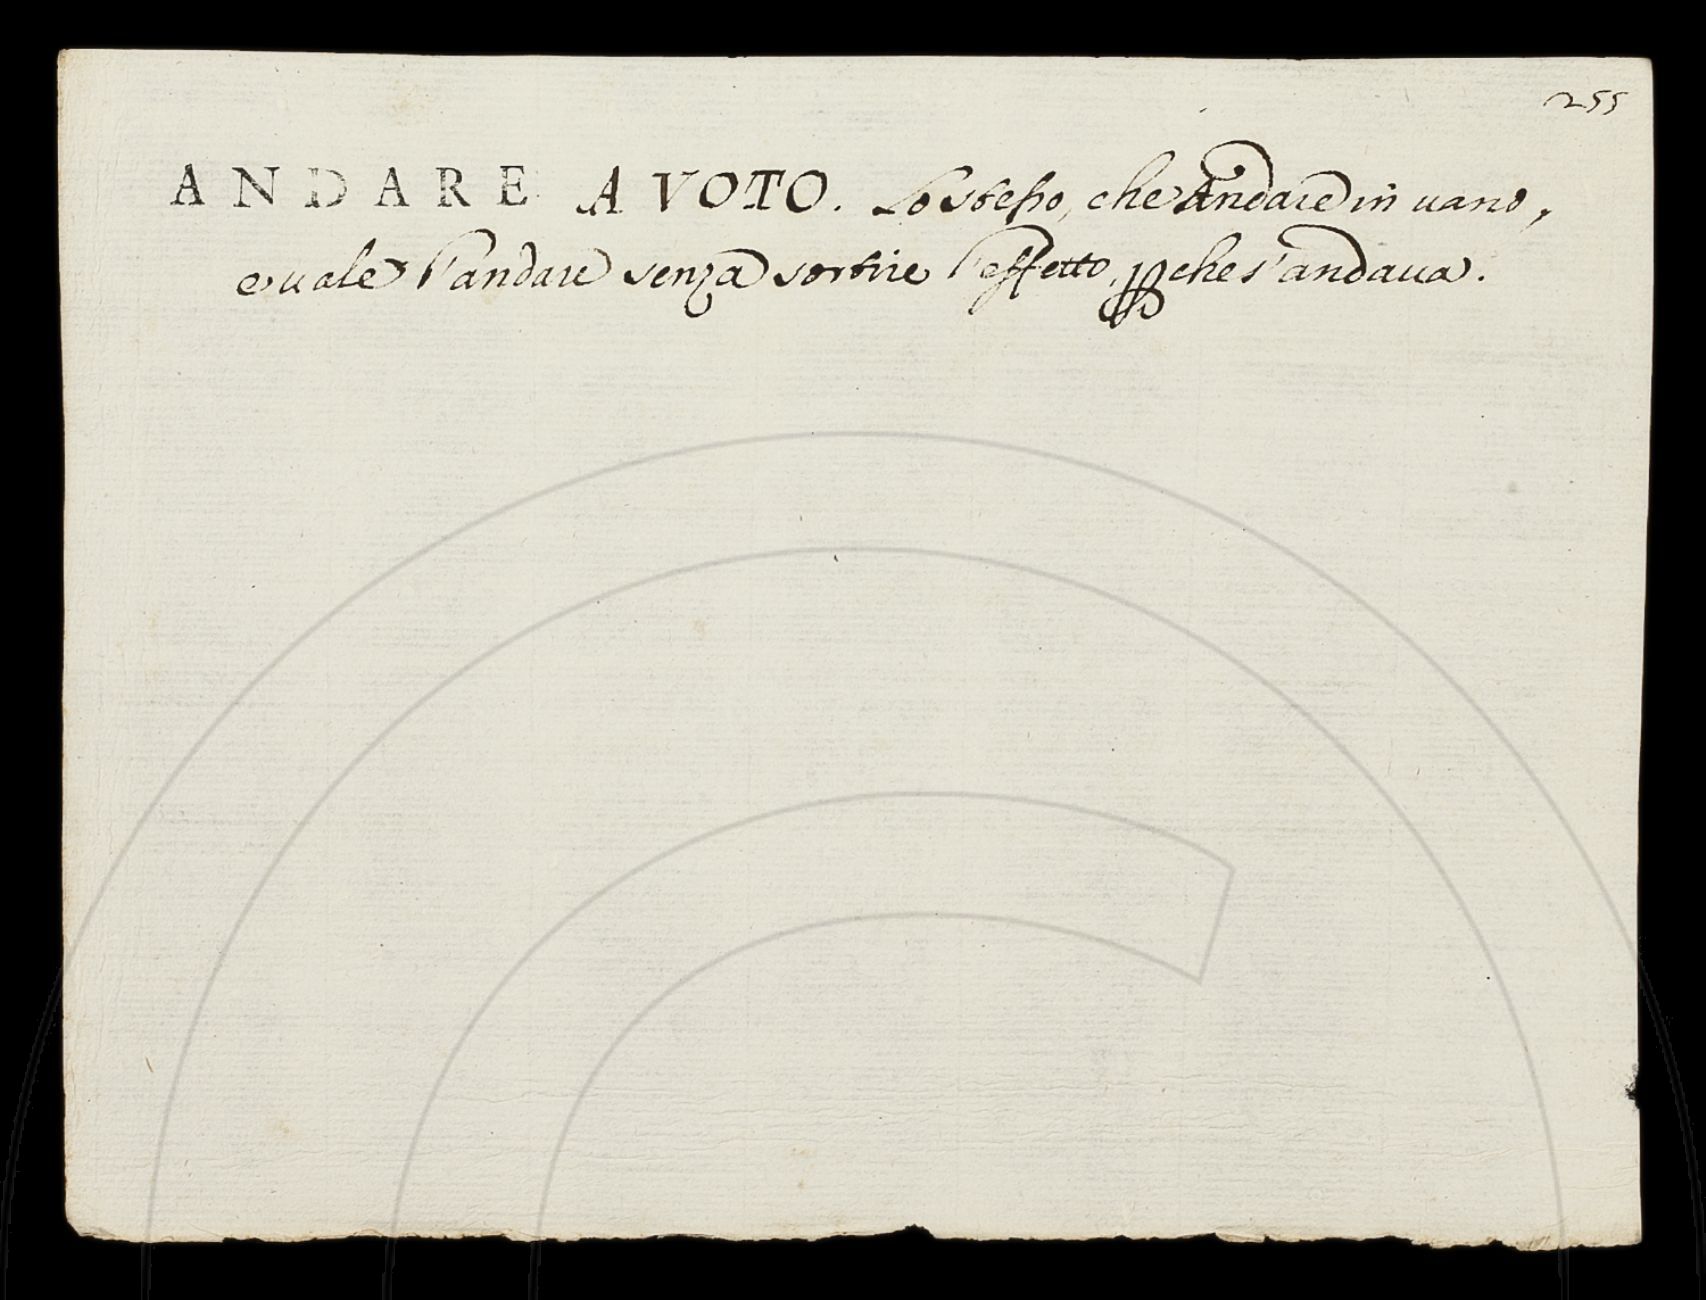 255
ANDARE A VOTO. Lo stesso, che Andare in uano,
e uale l'andare senza sortire l'effetto, p che s'andaua.